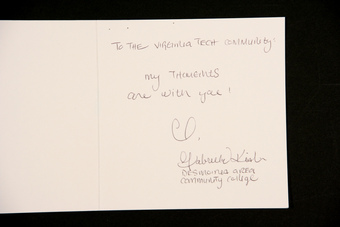 TO THE VIRGINIA TECH COMMUNITY:
my THOUGHTS
are with you!
DESMOINES AREA
COMMUNITY COLLEGE